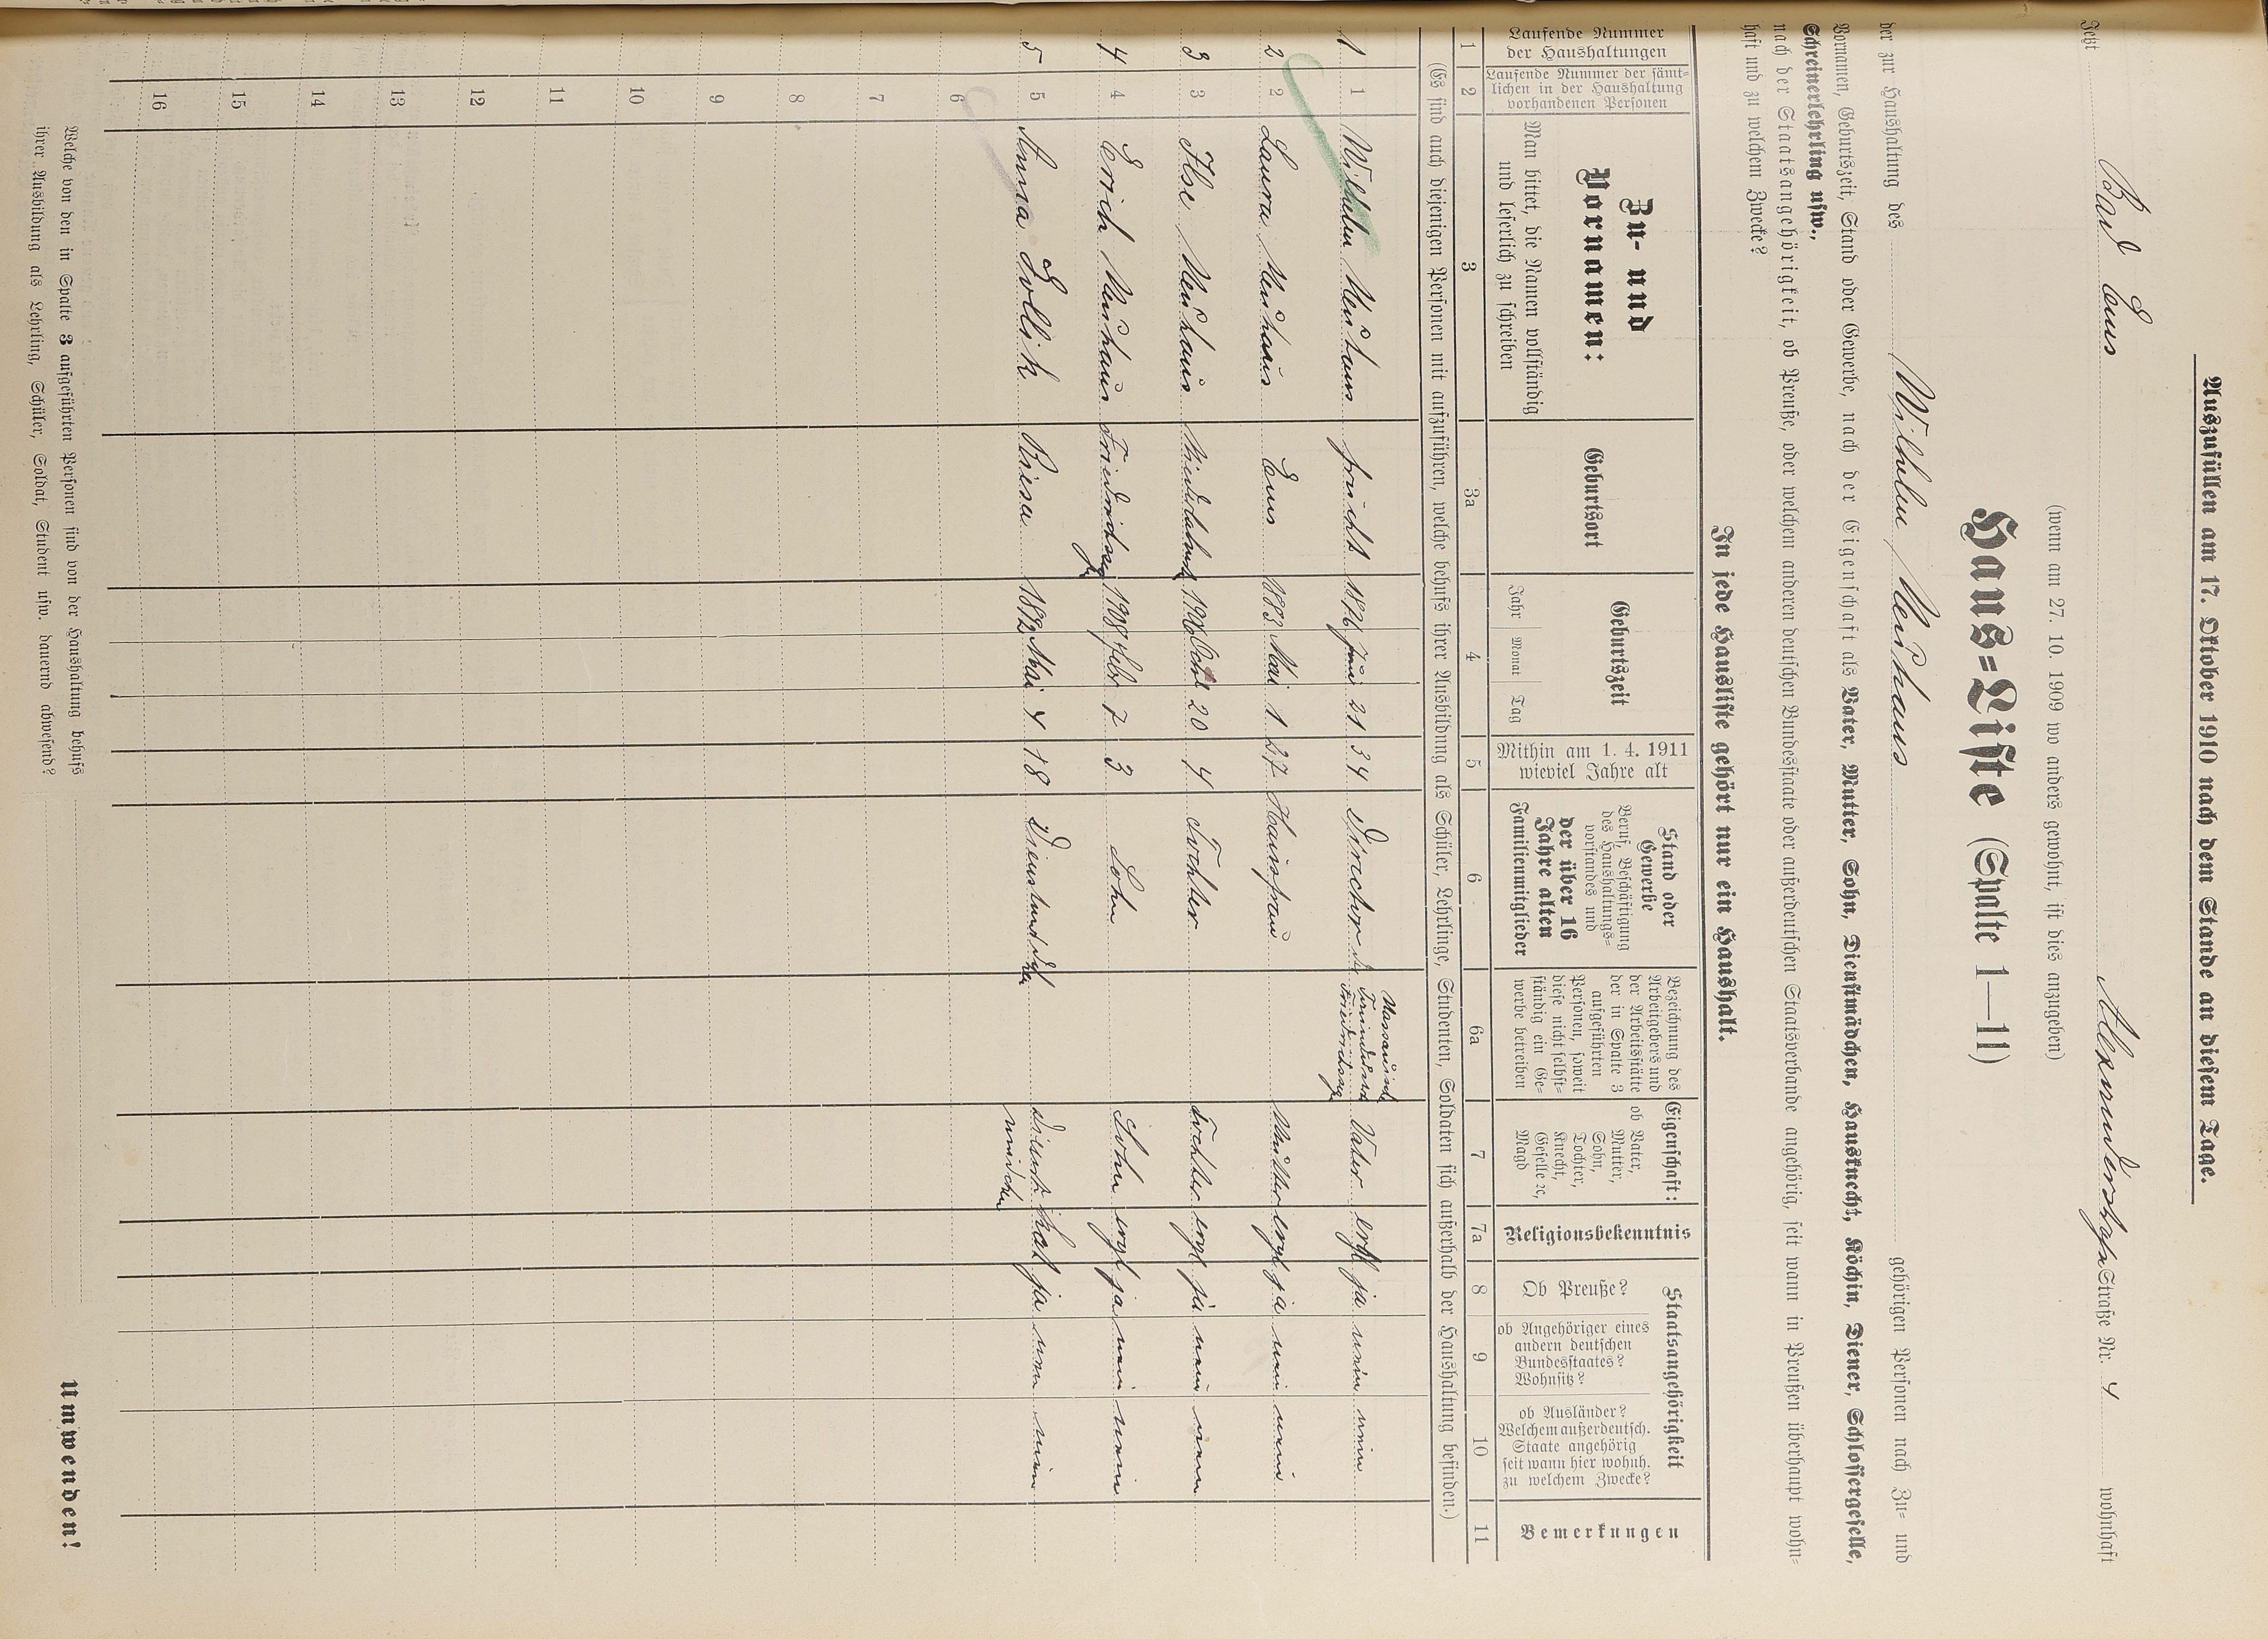 Auszufüllen am 17. Oktober 1910 nach dem Stande an diesem Tage.
Jetzt Bad Ems Alexanderstraße Straße Nr. 4 wohnhaft
(wenn am 27. 10. 1909 wo anders gewohnt, ist dies anzugeben)
Haus-Liste (Spalte 1—11)
der zur Haushaltung des Wilhelm Neuhaus gehörigen Personen nach Zu- und
Vornamen, Geburtszeit, Stand oder Gewerbe, nach der Eigenschaft als Vater, Mutter, Sohn, Dienstmädchen, Hausknecht, Köchin, Diener, Schlossergeselle,
Schreinerlehrling usw.,
nach der Staatsangehörigkeit, ob Preuße, oder welchem anderen deutschen Bundesstaate oder außerdeutschen Staatsverbande angehörig, seit wann in Preußen überhaupt wohn-
haft und zu welchem Zwecke?
In jede Hausliste gehört nur ein Haushalt.
Laufende Nummer
der Haushaltungen
Laufende Nummer der sämt-
lichen in der Haushaltung
vorhandenen Personen
Zu- und
Vornamen:
Man bittet, die Namen vollständig
und leserlich zu schreiben
Geburtsort
Geburtszeit
Jahr Monat Tag
Mithin am 1. 4. 1911
wieviel Jahre alt
Stand oder
Gewerbe
Beruf, Beschäftigung
des Haushaltungs-
vorstandes und
der über 16
Jahre alten
Familienmitglieder
Bezeichnung des
Arbeitgebers und
der Arbeitsstätte
der in Spalte 3
aufgeführten
Personen, soweit
diese nicht selbst-
ständig ein Ge-
werbe betreiben
Eigenschaft:
ob Vater,
Mutter,
Sohn,
Tochter,
Knecht,
Geselle ꝛc,
Magd
Religionsbekenntnis
Staatsangehörigkeit
Ob Preuße?
ob Angehöriger eines
andern deutschen
Bundesstaates?
Wohnsitz?
ob Ausländer?
Welchem außerdeutsch.
Staate angehörig
seit wann hier wohnh.
zu welchem Zwecke?
Bemerkungen
1 2 3 3a 4 5 6 6a 7 7a 8 9 10 11
(Es sind auch diejenigen Personen mit aufzuführen, welche behufs ihrer Ausbildung als Schüler, Lehrlinge, Studenten, Soldaten sich außerhalb der Haushaltung befinden.)
1 1 Wilhelm Neuhaus Frücht 1876 Juni 21 34 Director Vater evgl ja nein nein
2 2 Laura Neuhaus Ems 1883 Mai 1 27 Hausfrau Mutter evgl ja nein nein
3 3 Ilse Neuhaus 1906 20 4 Tochter Tochter evgl ja nein nein
4 4 Erich Neuhaus Friedrichsegen 1908 Febr 7 3 Sohn Sohn evgl ja nein nein
5 5 Anna 1892 Mai 4 18 Dienstmädchen Dienst-
mädchen Kath ja nein nein
6
7
8
9
10
11
12
13
14
15
16
Welche von den in Spalte 3 aufgeführten Personen sind von der Haushaltung behufs
ihrer Ausbildung als Lehrling, Schüler, Soldat, Student usw. dauernd abwesend?
Umwenden!